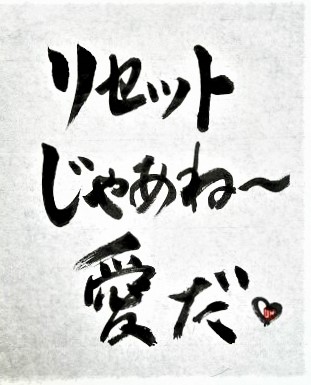 リセット
じゃあね〜
愛だ